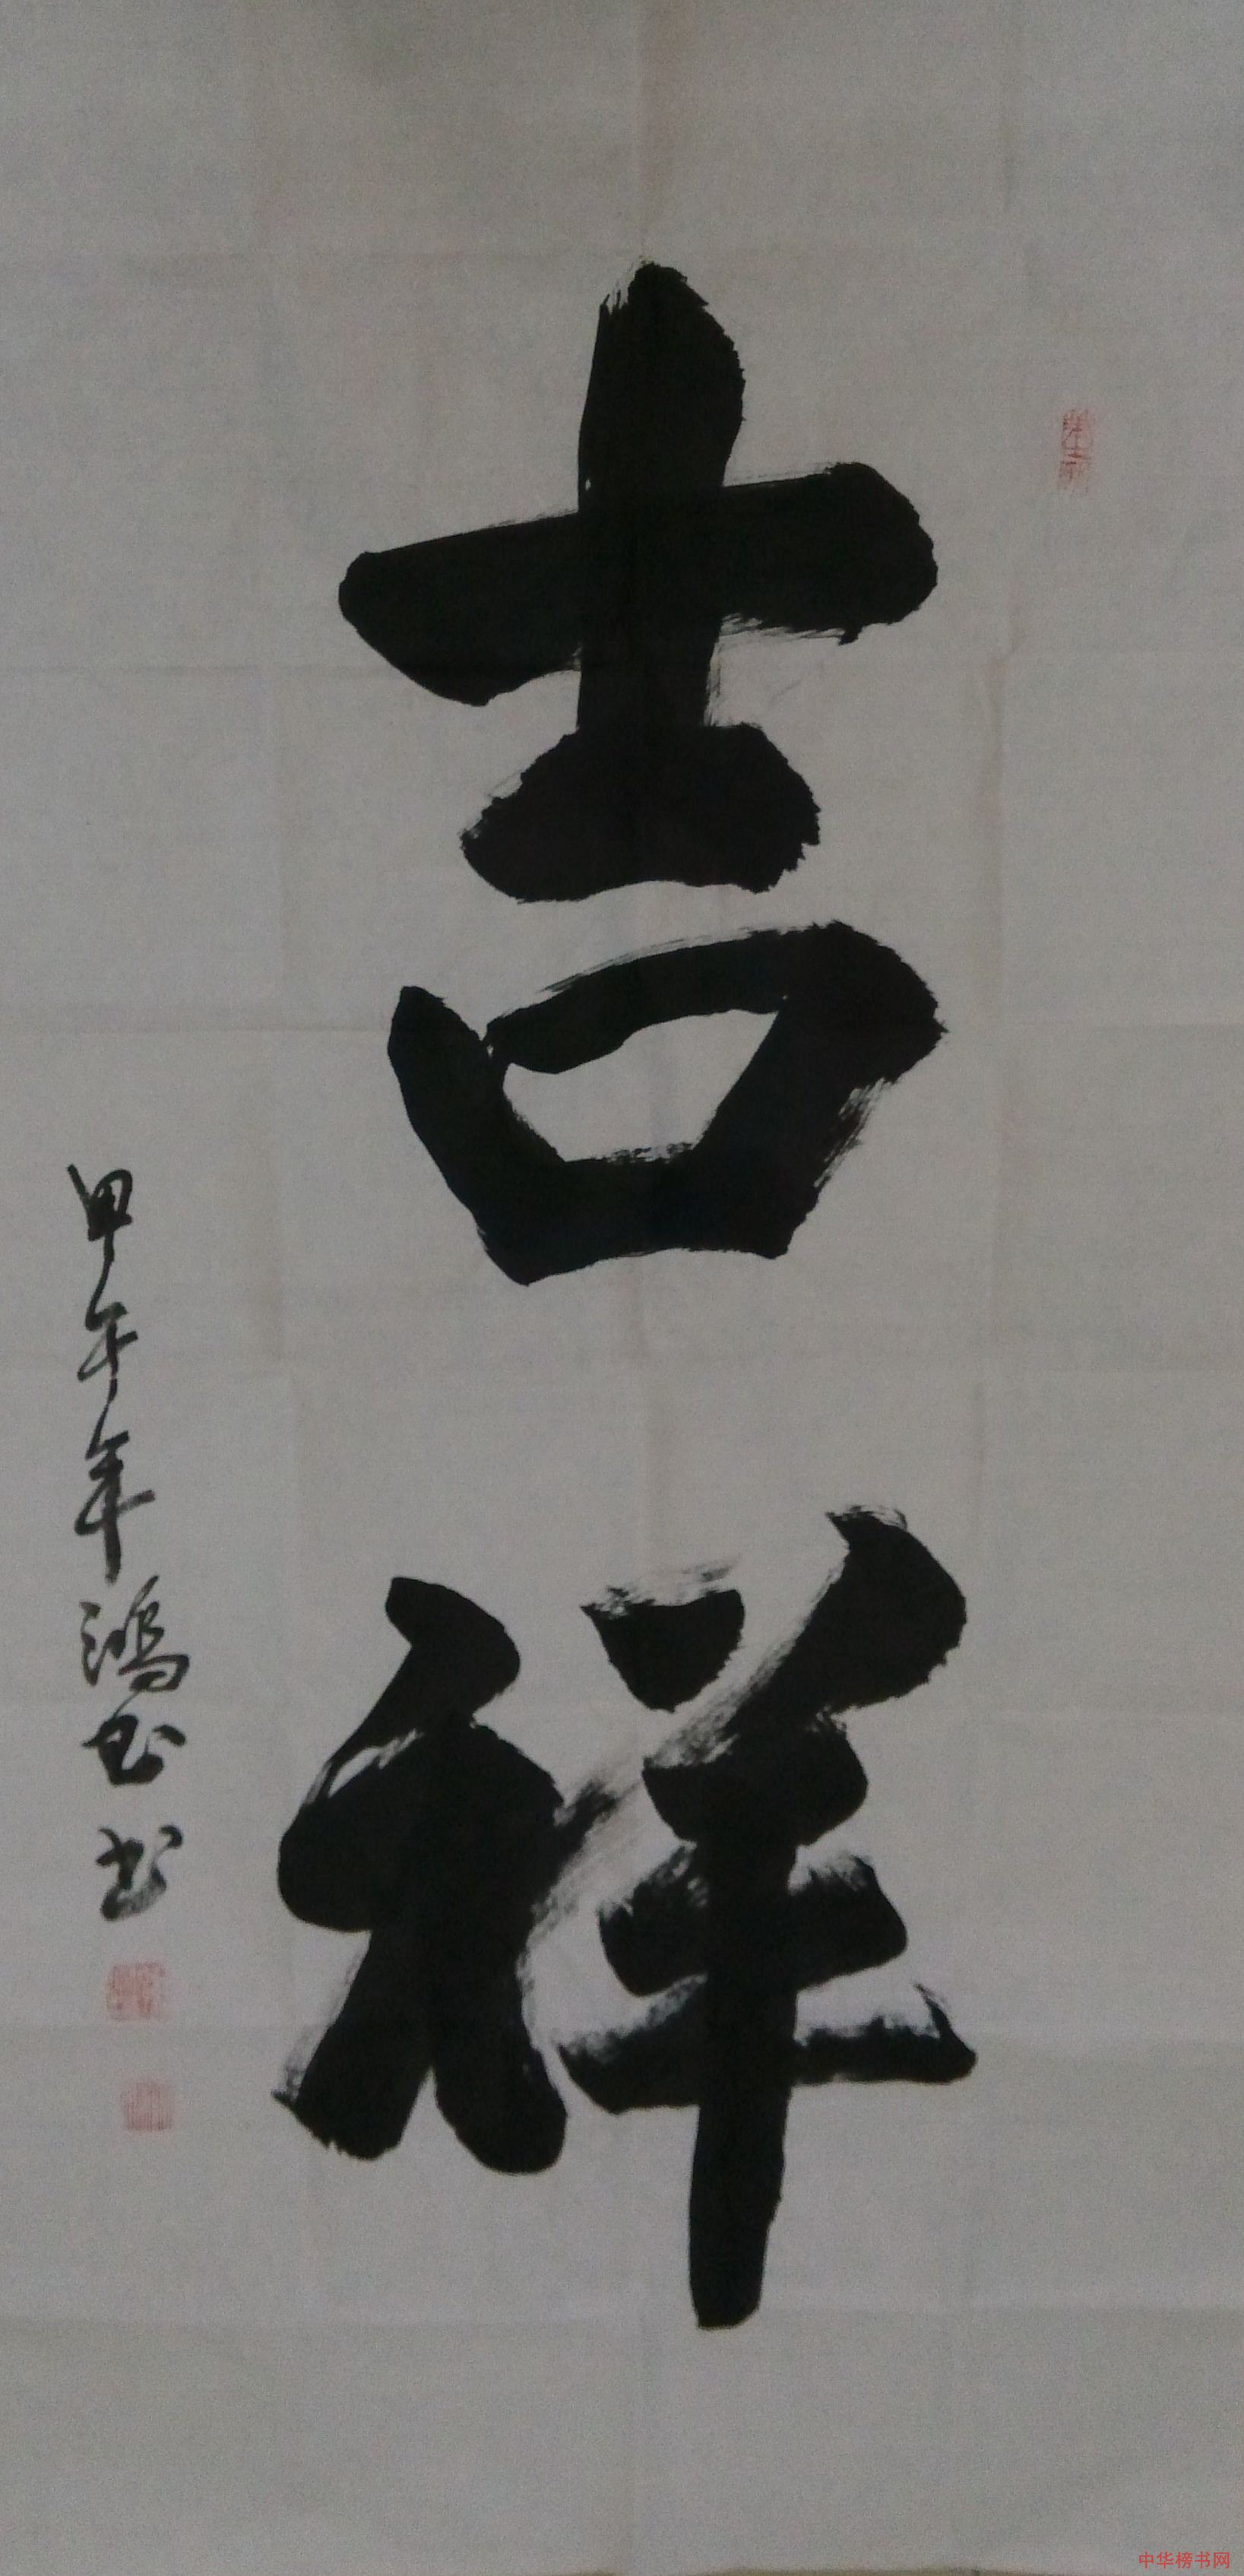 吉祥
甲午年鸿志书
中华榜书网